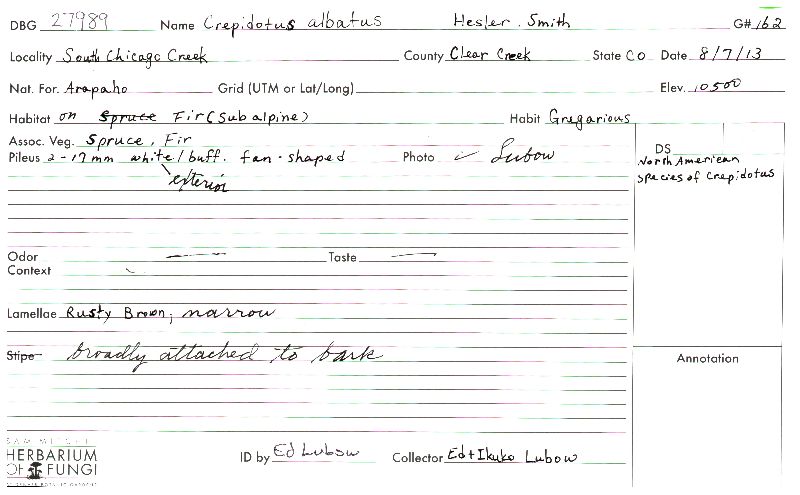 DBG 27989 Name Crepidotus albatus Hesler. Smith G# 162
Locality South Chicago Creek County Clear Creek State CO Date 8/7/13
Nat. For. Arapaho Grid (UTM or Lat/Long) Elev. 10500
Habitat on Spruce Fir (Subalpine) Habit Gregarious
Assoc. Veg. Spruce, Fir
Pileus 2-17mm white/buff. fan-shaped Photo ✓ Lubow
exterior
DS
North American
species of Crepidotus
Odor — Taste —
Context
Lamellae Rusty Brown; narrow
Stipe broadly attached to bark
Annotation
SAM MITCHEL
HERBARIUM
OF FUNGI
ID by Ed Lubow Collector Ed + Ikuko Lubow